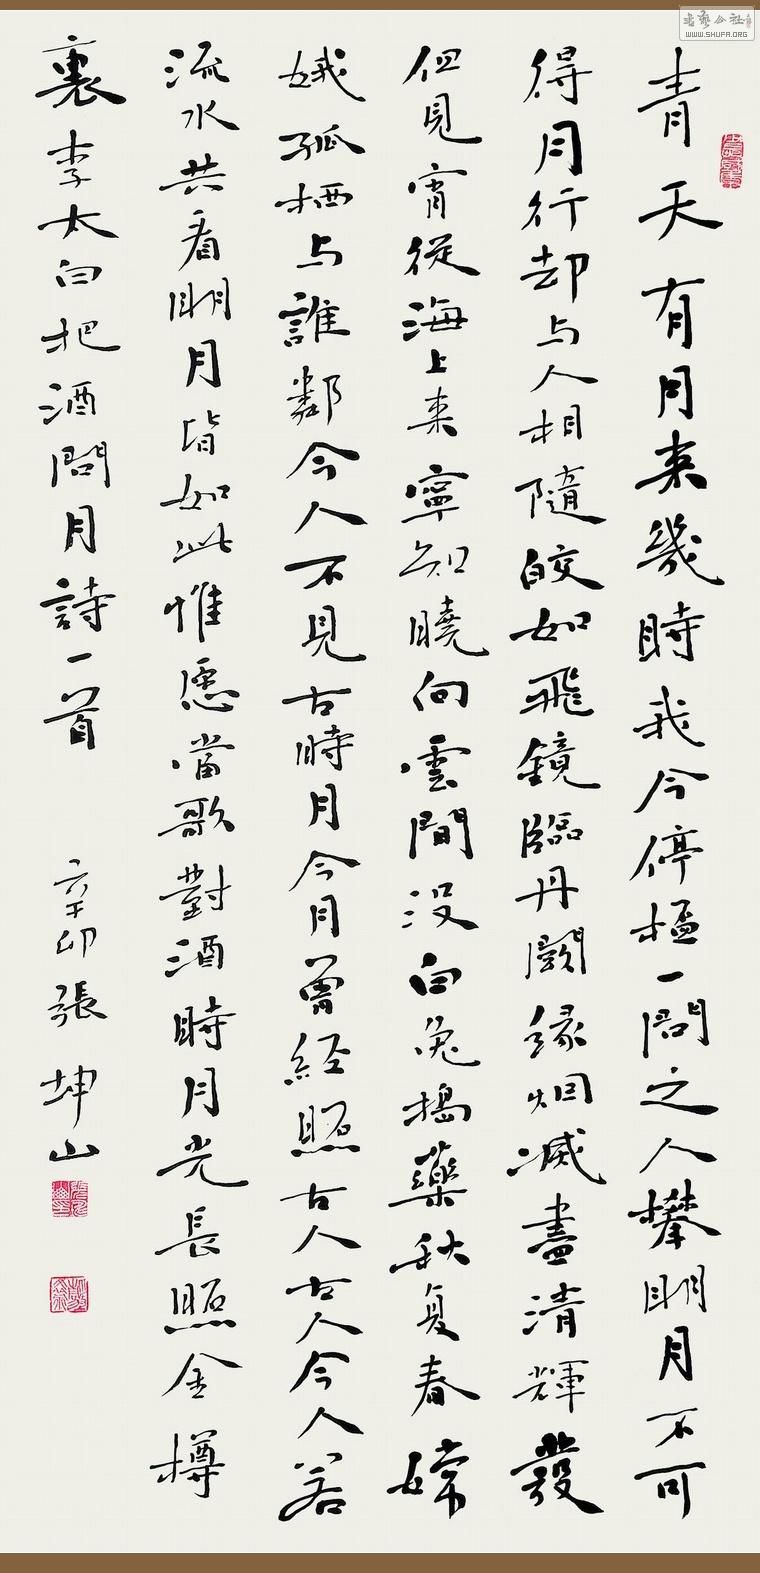 青天有月来幾時我今停杯一問之人攀明月不可
得月行却与人相隨皎如飛鏡臨丹闕緣烟滅盡清輝發
但見宵從海上来寧知曉向雲間没白兔搗藥秋復春嫦
娥孤栖与誰鄰今人不見古時月今月曾經照古人古人今人若
流水共看明月皆如此惟愿當歌對酒時月光長照金樽
裏李太白把酒問月詩一首
辛卯張坤山
WWW.SHUFA.ORG